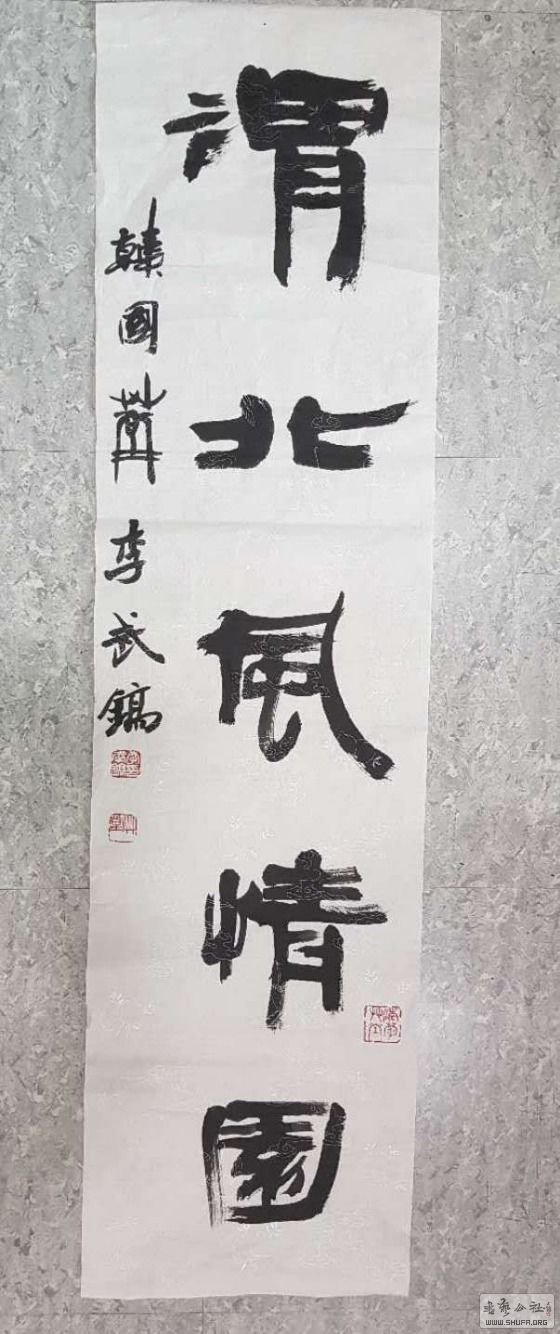 渭北風情園
韓國 李武鎬
书艺公社
WWW.SHUFA.ORG